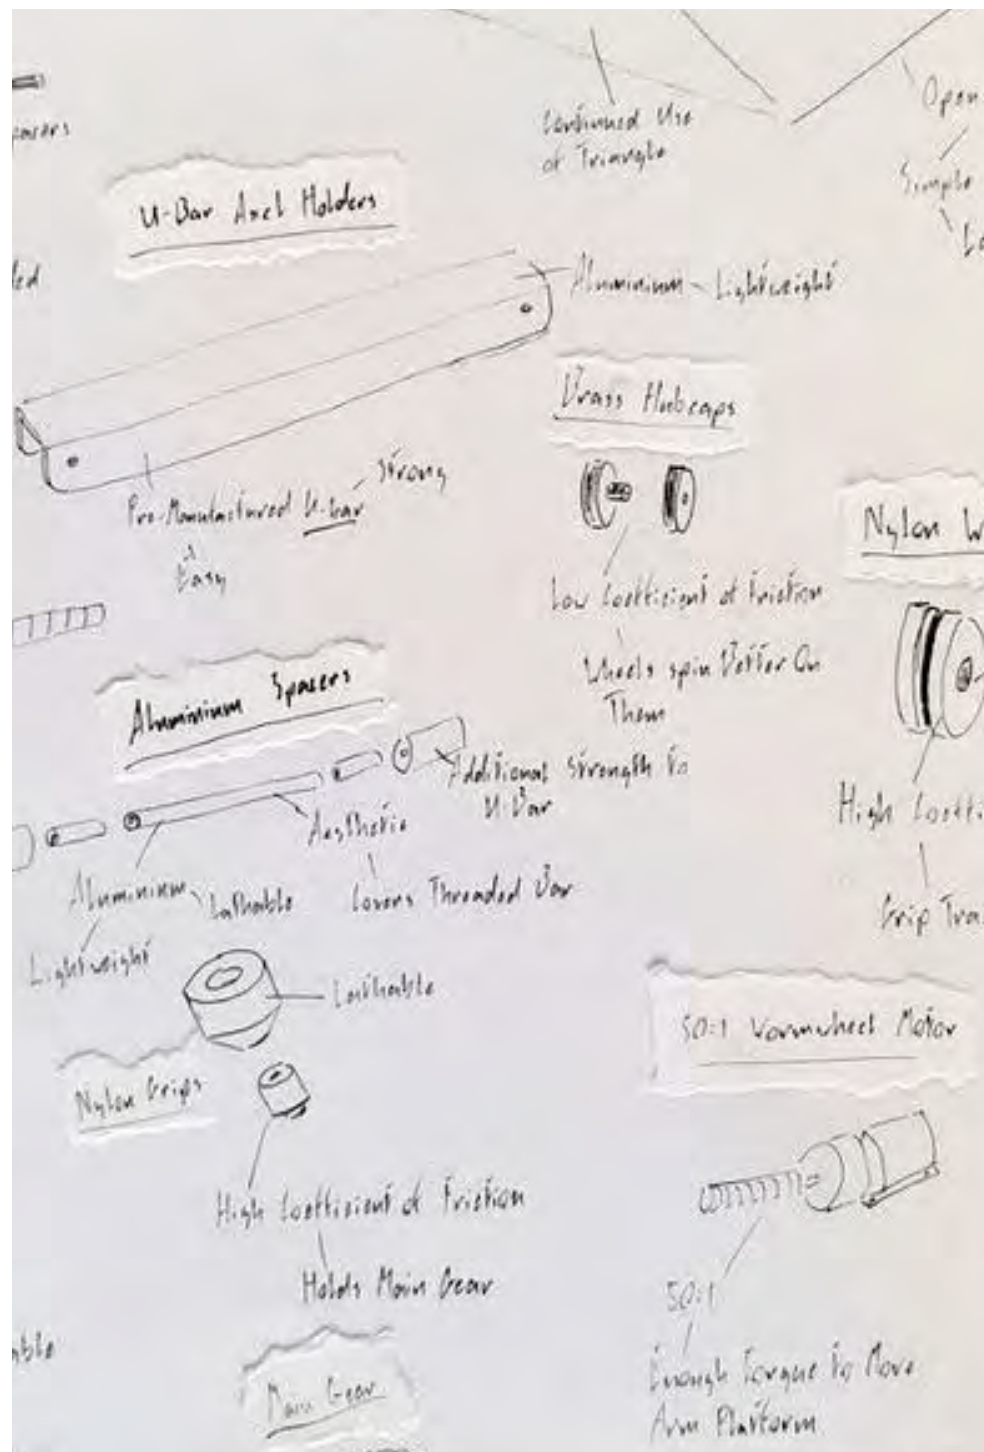 Continued Use
of Triangle
Open
Simple
U-Bar Axel Holders
Aluminium Lightweight
Brass Hubcaps
Strong
Pre-Manufactured U-bar
Easy
Low Coefficient of Friction
Wheels spin Better On
Them
Nylon
High
Grip
Aluminium Spacers
Additional Strength to
U-Bar
Aesthetic
Covers Threaded Bar
Aluminium
Lathable
Lightweight
Lathable
Nylon Grips
High Coefficient of Friction
Holds Main Gear
50:1 Wormwheel Motor
50:1
Enough Torque to Move
Arm Platform
Main Gear